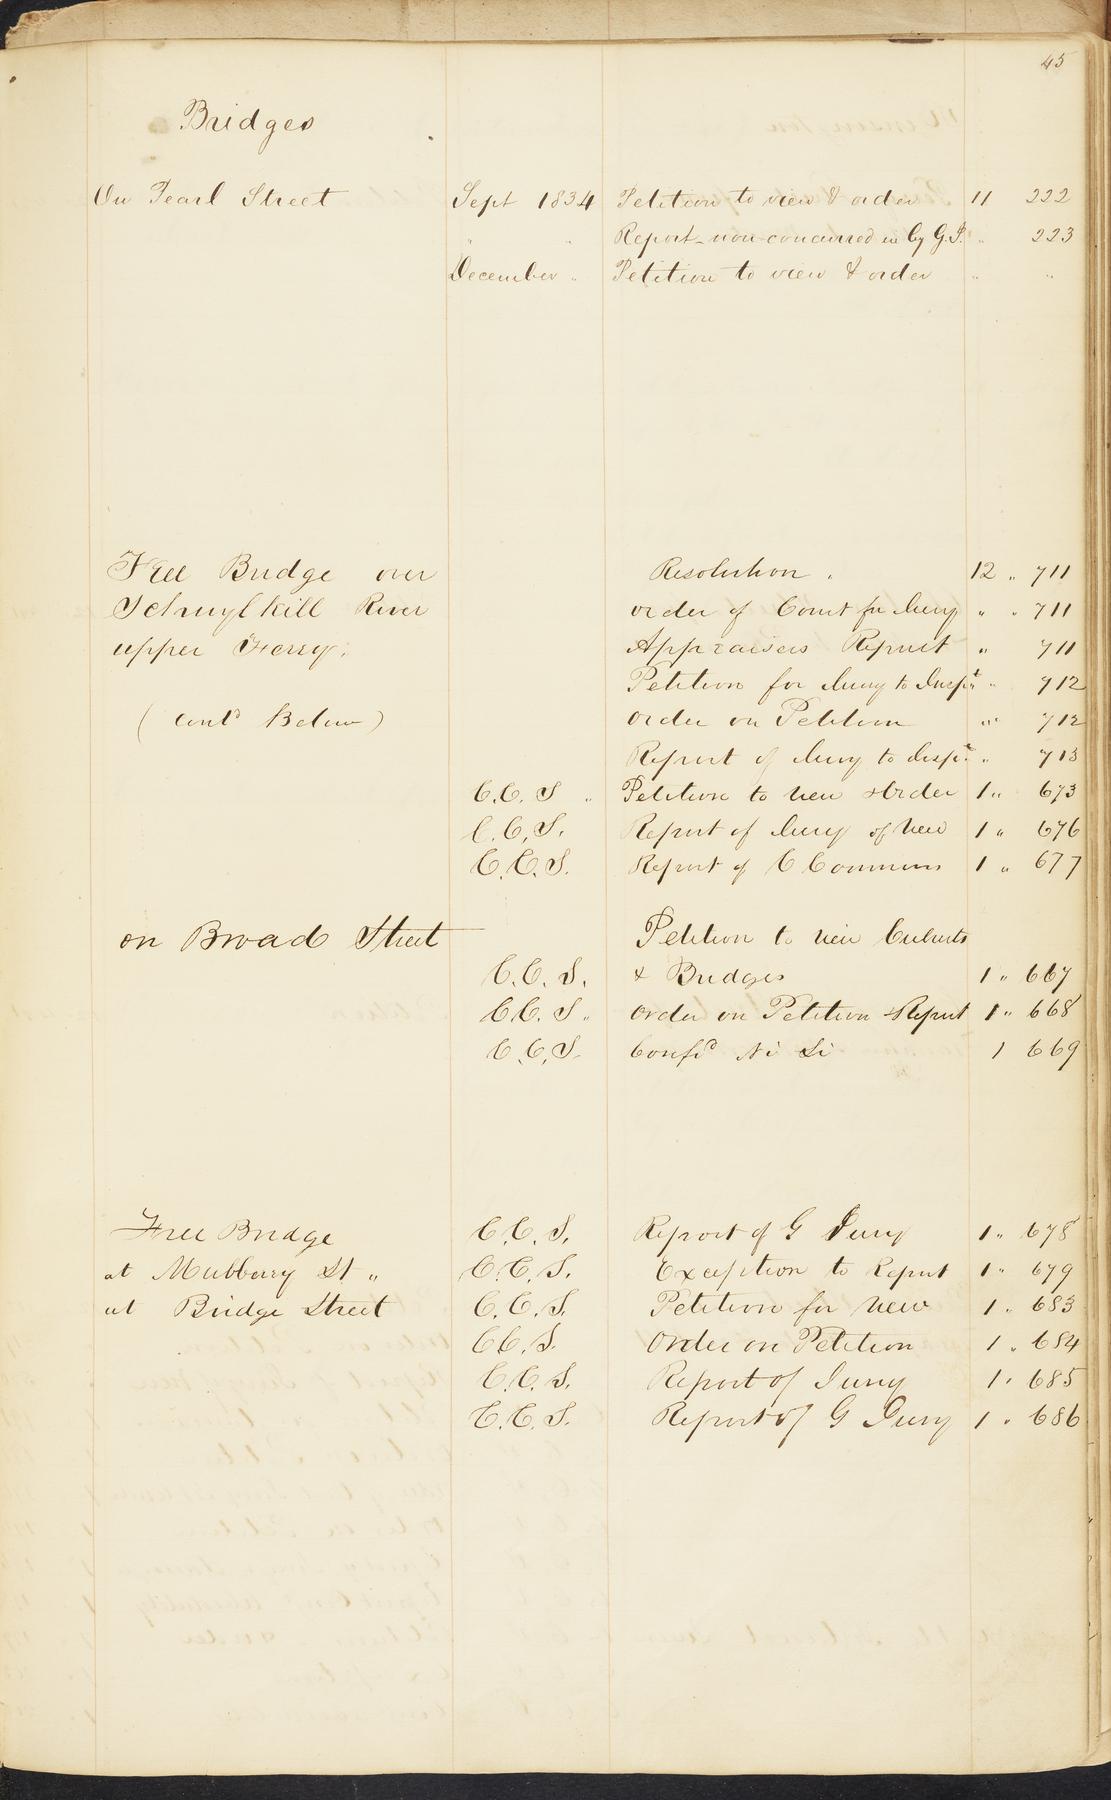 45
Bridges
On Pearl Street Sept 1834 Petition to view & order 11 222
" " Report non-concurred in by G.J. " 223
December " Petition to view & order " "
Free Bridge over Resolution . 12 " 711
Schuylkill River order of Court for Jury " " 711
upper Ferry. Appraisers Report " 711
Petition for Jury to Inspt " 712
(contd Below) order on Petition " 712
Report of Jury to Inspt " 713
C.C. S " Petition to view & Order 1 " 673
C.C.S. Report of Jury of View 1 " 676
C.C.S. Report of C Commrs 1 " 677
on Broad Street Petition to view Culverts
C.C.S. & Bridges 1 " 667
C.C. S " order on Petition & Report 1 " 668
C.C.S. Confd Ni Si 1 669
Free Bridge C.C.S. Report of G Jury 1 " 678
at Mulberry St " C.C.S. Exception to Report 1 " 679
at Bridge Street C.C.S. Petition for View 1 " 683
C.C.S. Order on Petition 1 " 684
C.C.S. Report of Jury 1 " 685
C.C.S. Report of G Jury 1 " 686